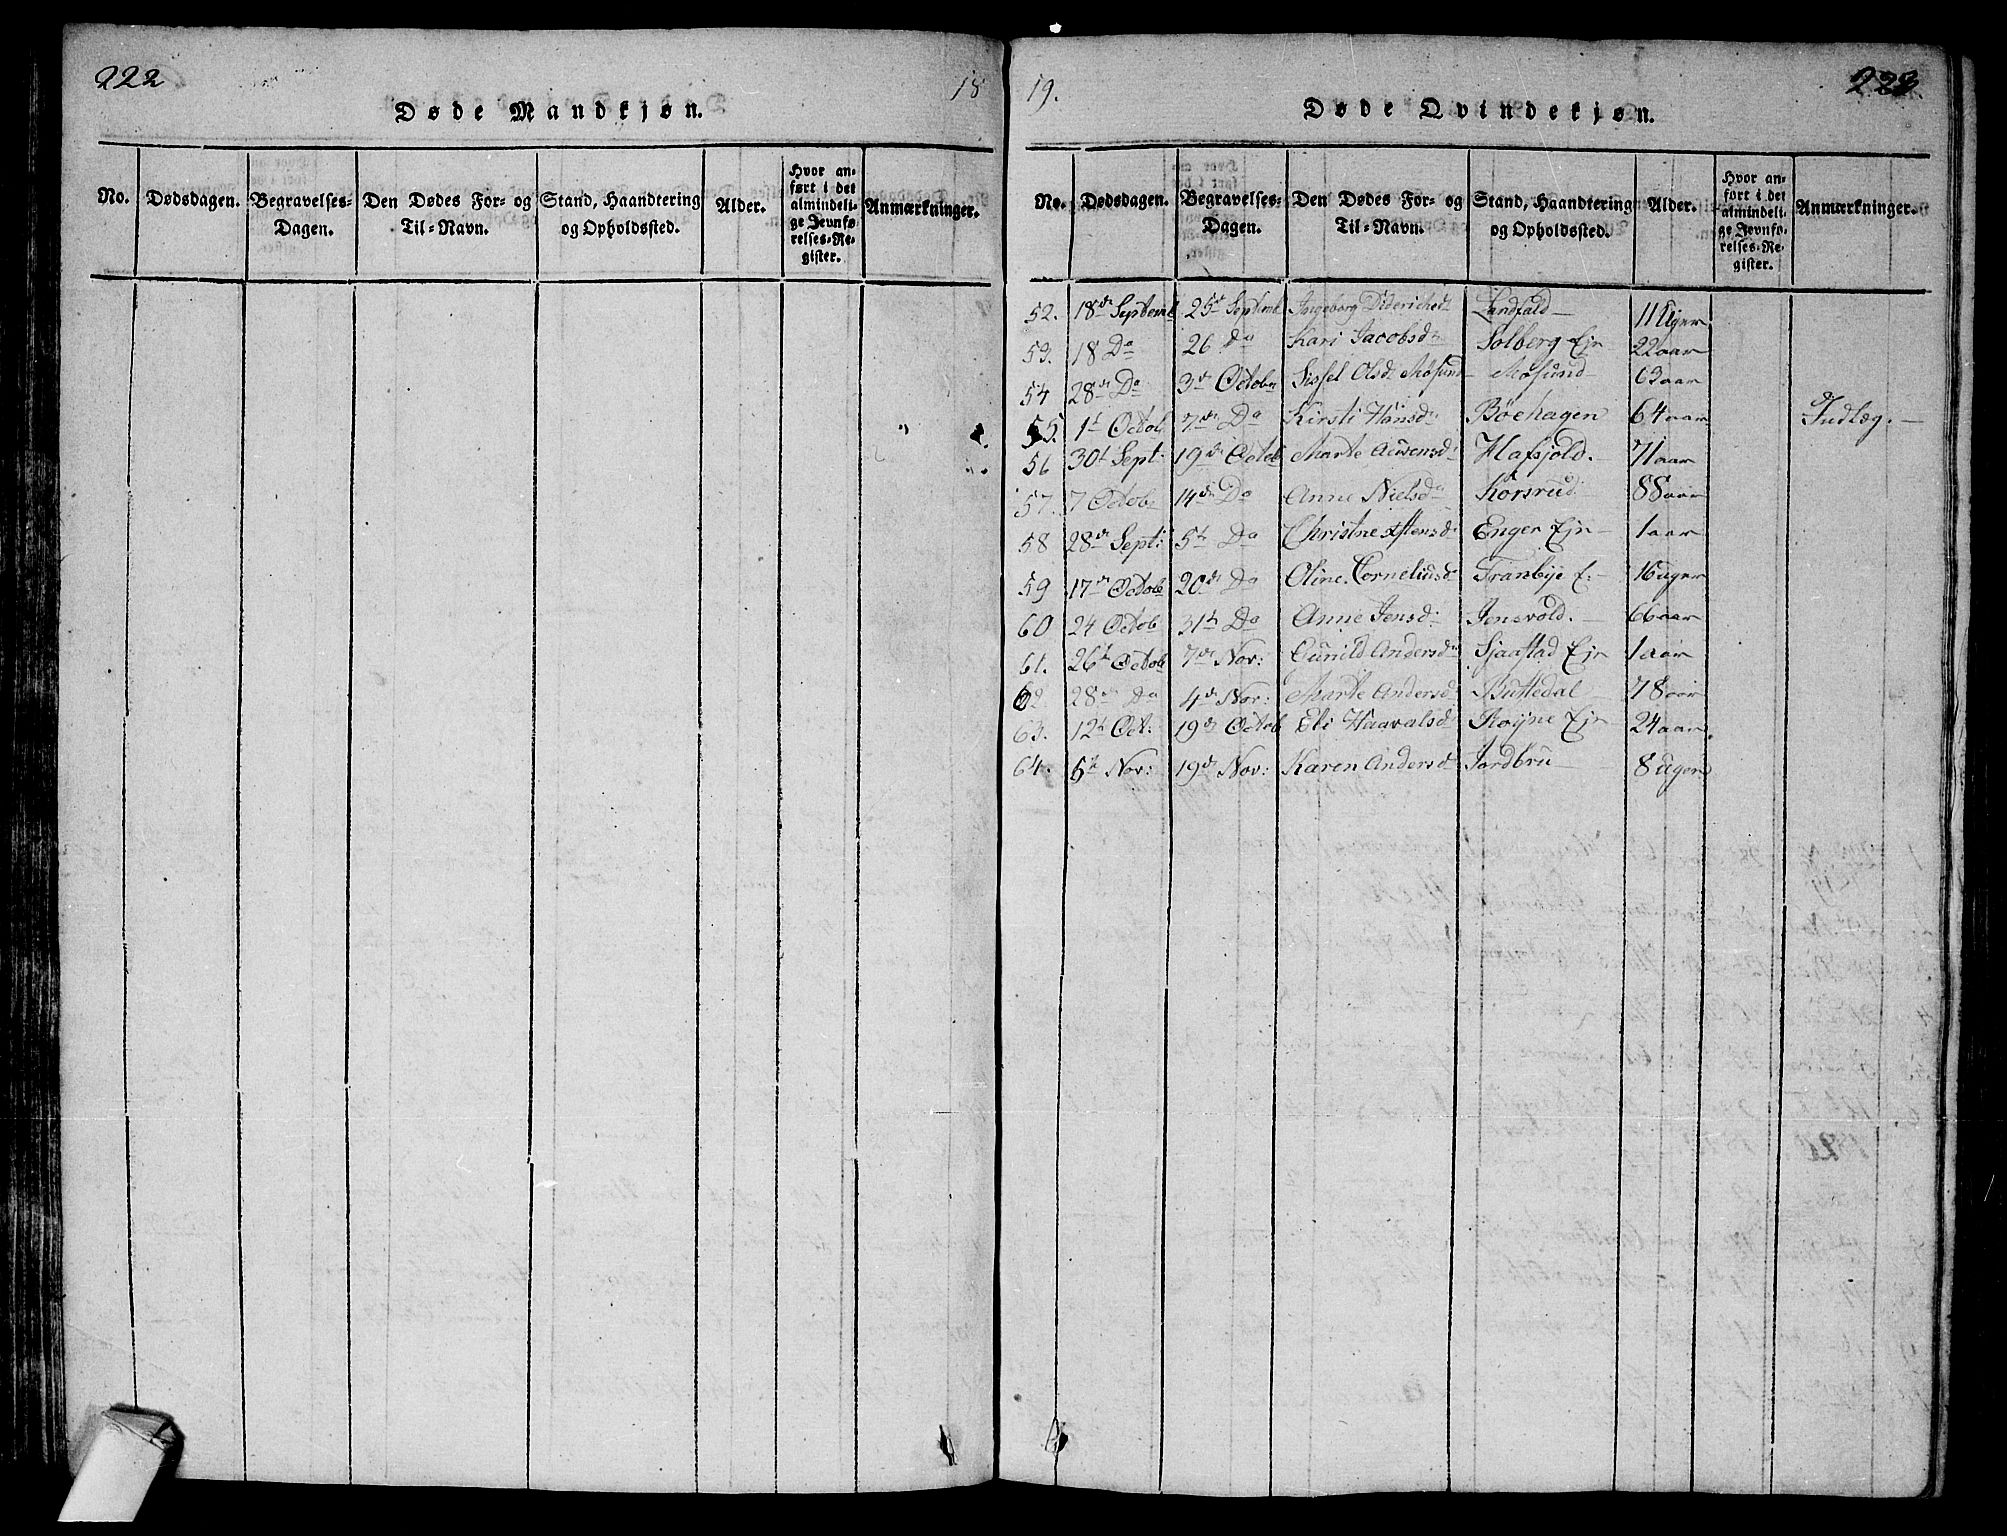 222
18
Døde Mandkjøn.
No. Dødsdagen. Begravelses-Dagen. Den Dødes For- og Til-Navn. Stand, Haandtering og Opholdssted. Alder. Hvor anført i det almindelige Jevnførelses-Register. Anmærkninger.
19.
223
Døde Qvindekjøn.
No. Dødsdagen. Begravelses-Dagen. Den Dødes For- og Til-Navn. Stand, Haandtering og Opholdssted. Alder. Hvor anført i det almindelige Jevnførelses-Register. Anmærkninger.
52. 18de Septemb 25de Septemb Ingeborg Diderichsd Landfald 11 Uger
53. 18 Do 26 Do Kari Jacobsd Solberg Eje 22 aar
54 28de Do 3de Octobr Sissel Olsd Møsund Møsund 63 aar
55. 1t Octob 7de Do Kirsti Hansd Bøehagen 64 aar Indlæg.
56 30t Sept: 19de Octob Marte Auensd Hafsjold. 71 aar
57. 7 Octob 14de Do Anne Nielsd Korsrud 88 aar
58 28de Sept: 5t Do Christne Astensd Enger Eje 1 aar
59 17de Octob 20de Do Oline Corneliusd Tranbye E: 16 uger
60 24 Octob 31t Do Anne Jensd Jensvold. 66 aar
61. 26t Octob 7de Nov: Gunild Andersd Sjaastad Eje 1 aar
62. 28de Do 4de Nov: Marte Andersd Buttedal 78 aar
63. 12t Oct: 19de Octob Eli Haavalsd Røyne Eje 24 aar.
64. 5t Nov: 19de Nov: Karen Andersd Jordbru 8 uger